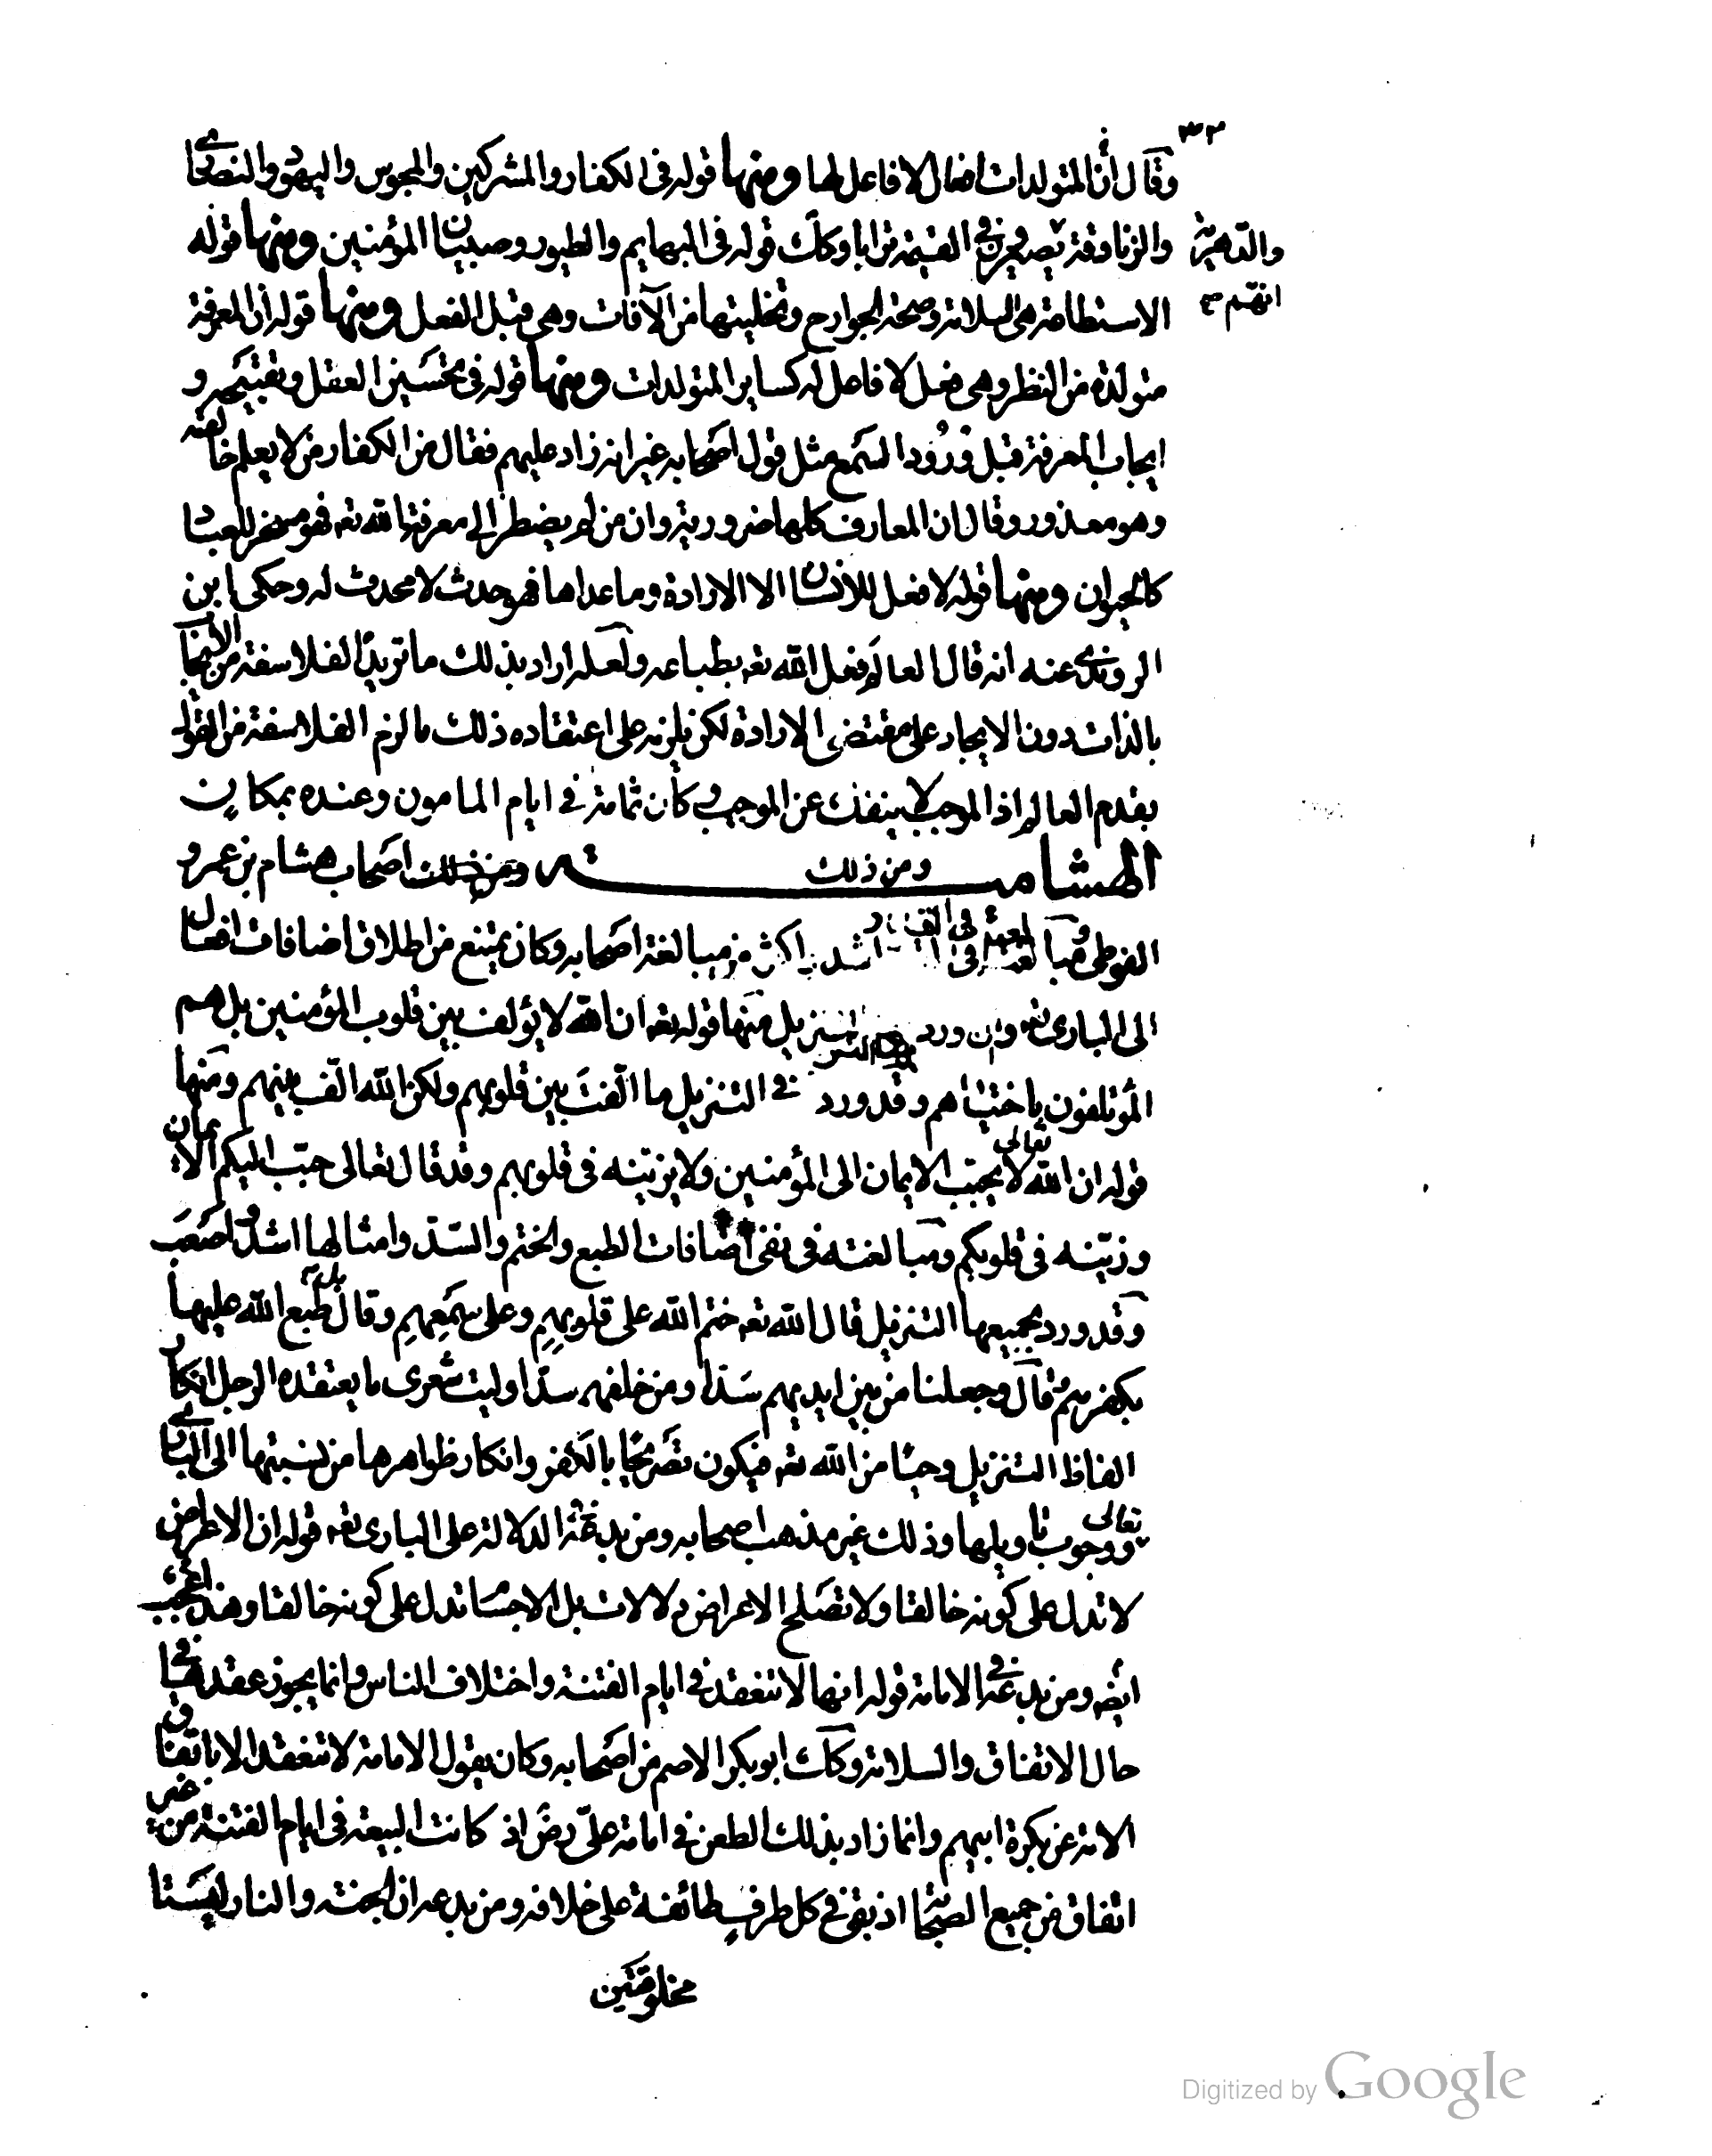 ٣٢
وقال ان المتولدات افعال لا فاعل لها ومنها قوله فى الكفار والمشركين والمجوس واليهود والنصارى
والدهرية والزنادقة يصيرون فى القيمة ترابا وكك قوله فى البهايم والطيور وصبيان المؤمنين ومنها قوله
انهم
الاستطاعة هى السلامة وصحة الجوارح وتخليتها من الآفات وهى قبل الفعل ومنها قوله ان المعرفة
متولدة من النظر وهى فعل لا فاعل له كساير المتولدات ومنها قوله فى تحسين العقل وتقبيحه و
ايجاب المعرفة قبل ورود السمع مثل قول اصحابه غير انه زاد عليهم فقال من الكفار من لا يعلم خالقه
وهو معذور وقال ان المعارف كلها ضرورية وان من لم يضطر الى معرفة الله تعه فهو مسخر للعباد
كالحيوان ومنها قوله لا فعل للانسان الا الارادة وما عداها فهو حدث لا محدث له وحكى ابن
الروندى عنه انه قال العالم فعل الله تعه بطباعه ولعله اراد بذلك ما تريد الفلاسفة من الايجاب
بالذات دون الايجاد على مقتضى الارادة لكن يلزمه على اعتقاده ذلك ما لزم الفلاسفة من القول
بقدم العالم اذ الموجب لا ينفك عن الموجب وكان ثمامة فى ايام المامون وعنده بمكان
الهشامية ومن ذلك اصحاب هشام بن عمرو
الفوطى ومبالغته فى القدر اشد واكثر من مبالغة اصحابه وكان يمتنع من اطلاق اضافات افعال
الى البارى تعه وان ورد بها التنزيل منها قوله تعه ان الله لا يؤلف بين قلوب المؤمنين بل هم
المؤتلفون باختيارهم وقد ورد فى التنزيل ما الفت بين قلوبهم ولكن الله الف بينهم ومنها
قوله ان الله تعالى لا يحبب الايمان الى المؤمنين ولا يزينه فى قلوبهم وقد قال تعالى حبب اليكم الايمان
وزينه فى قلوبكم ومبالغته فى نفى اضافات الطبع والختم والسد وامثالها اشد واصعب
وقد ورد بجميعها التنزيل قال الله تعه ختم الله على قلوبهم وعلى سمعهم وقال بل طبع الله عليها
بكفرهم وقال وجعلنا من بين ايديهم سدا ومن خلفهم سدا وليت شعرى ما يعتقده الرجل انكار
الفاظ التنزيل وحيا من الله تعه فيكون تصريحا بالكفر وانكار ظواهرها من نسبتها الى البارى
تعالى ووجوب تاويلها وذلك غير مذهب اصحابه ومن بدعه فى الدلالة على البارى تعه قوله ان الاعراض
لا تدل على كونه خالقا ولا تصلح الاعراض دلالات بل الاجسام تدل على كونه خالقا وهذا عجب
ايضه ومن بدعه فى الامامة قوله انها لا تنعقد فى ايام الفتنة واختلاف الناس وانما يجوز عقدها فى
حال الاتفاق والسلامة وكك ابو بكر الاصم من اصحابه وكان يقول الامامة لا تنعقد الا باتفاق
الامة عن بكرة ابيهم وانما اراد بذلك الطعن فى امامة على رض اذ كانت البيعة فى ايام الفتنة من غير
اتفاق من جميع الصحابة اذ بقى فى كل طرف طائفة على خلافه ومن بدعه ان الجنة والنار ليستا
مخلوقتين
Digitized by Google